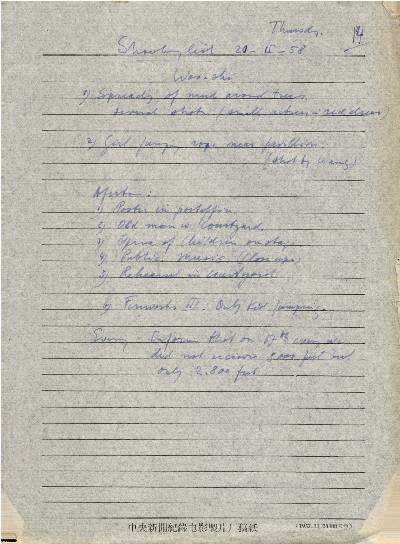 Thursday
14
Shooting list 20-II-58
Woo-shi
1) Spreading of mud around trees.
several shots /small actress in red dress
2) Girl jumping rope near pavillion.
(shot by Wang)
Afternoon:
1) Poster in postoffice
2) Old man in Courtyard.
3) Opera of Children onstage
4) Public music (Closeups)
5) Rehearsal in courtyard
6) Fireworks III. Only kids jumping.
Evening - Inform that on 17th evening we
did not receive 3.000 feet but
only 2.800 feet.
中央新聞紀錄电影製片厂稿紙